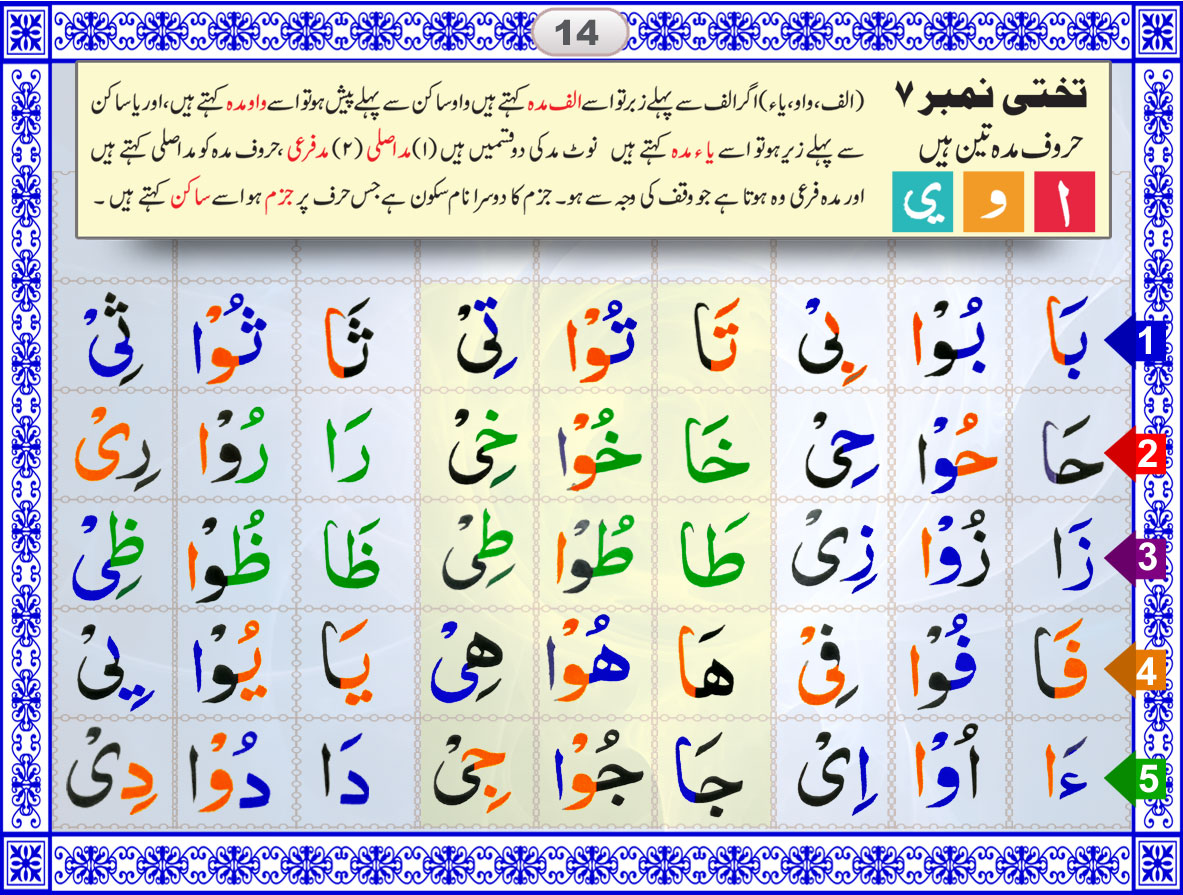 14
تختی نمبر ۷
حروف مدہ تین ہیں
ا و ی
(الف، واو، یاء) اگر الف سے پہلے زبر تو اسے الف مدہ کہتے ہیں واو ساکن سے پہلے پیش ہو تو اسے واو مدہ کہتے ہیں، اور یا ساکن
سے پہلے زیر ہو تو اسے یاء مدہ کہتے ہیں نوٹ مد کی دو قسمیں ہیں (۱) مد اصلی (۲) مد فرعی ، حروف مدہ کو مد اصلی کہتے ہیں
اور مدہ فرعی وہ ہوتا ہے جو وقف کی وجہ سے ہو۔ جزم کا دوسرا نام سکون ہے جس حرف پر جزم ہو اسے ساکن کہتے ہیں ۔
1 بَا بُوْا بِیْ تَا تُوْا تِیْ ثَا ثُوْا ثِیْ
2 حَا حُوْا حِیْ خَا خُوْا خِیْ رَا رُوْا رِیْ
3 زَا زُوْا زِیْ طَا طُوْا طِیْ ظَا ظُوْا ظِیْ
4 فَا فُوْا فِیْ هَا هُوْا هِیْ یَا یُوْا یِیْ
5 ءَا اُوْا اِیْ جَا جُوْا جِیْ دَا دُوْا دِیْ